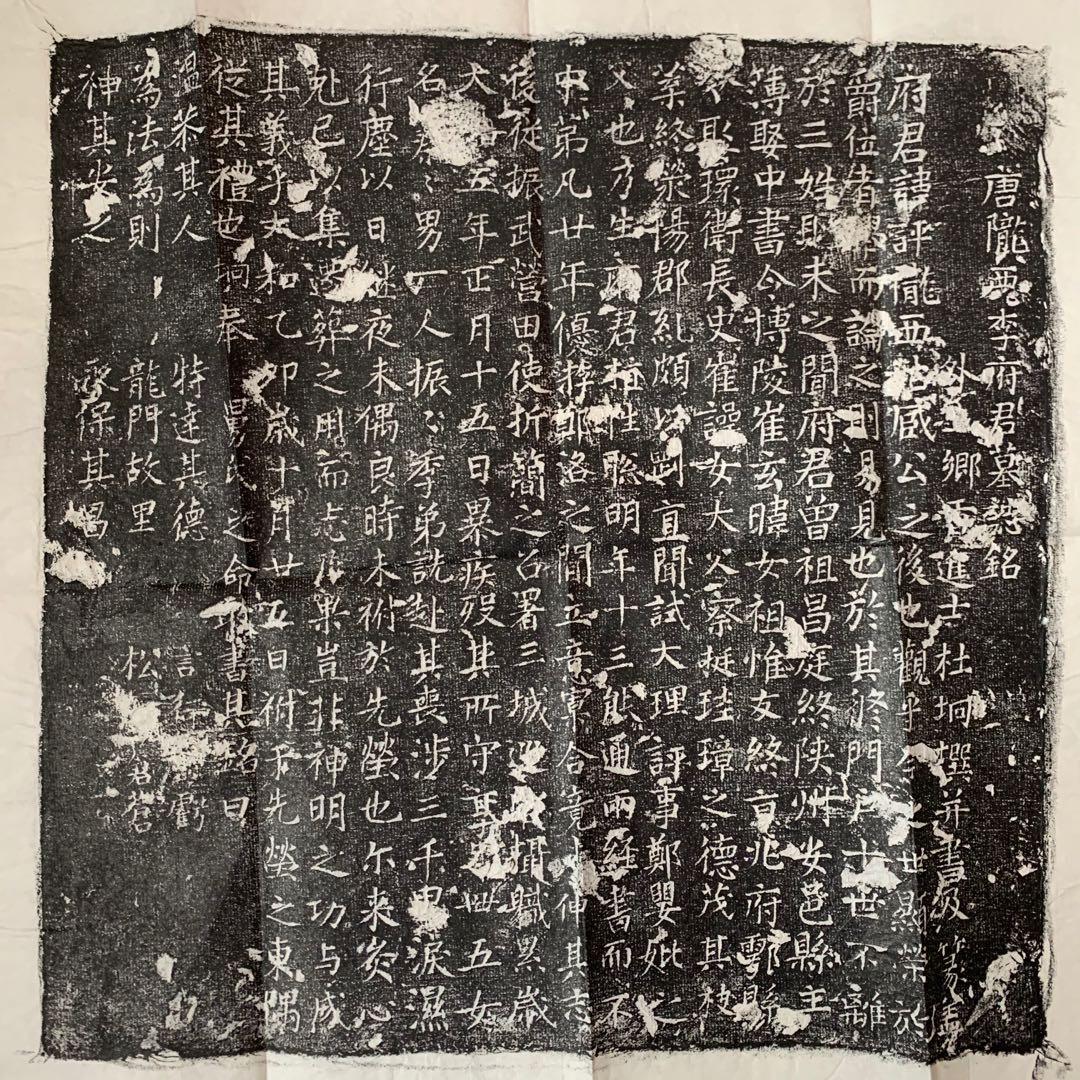 唐隴西李府君墓誌銘
鄉貢進士杜坰撰并書及篆蓋
府君諱評隴西姑臧公之後也觀乎今之世顯榮於
爵位者 而論之則易見也於其終門戶士世不離
於三姓則未之聞府君曾祖昌庭終陝州安邑縣主
簿娶中書令博陵崔玄暐女祖惟友終京兆府鄠縣
令娶環衛長史崔譟女大父察挺珪璋之德茂其枝
葉終滎陽郡糺頗以剛直聞試大理評事鄭嬰妣之
父也乃生府君 性聰明年十三能通兩經書而不
中第凡廿年優 鄭洛之間 音 合竟 伸其志
後從振武營田使折簡之召署三城 攝職累歲
大和五年正月十五日暴疾歿其所守 卌五女
名 男一人振振季弟詵赴其喪涉三千里淚濕
行塵以日繼夜未偶良時未祔於先塋也尒來 心
剋已以集遷葬之用而志 果豈非神明之功与成
其義乎大和乙卯歲十月廿五日祔于先塋之東隅
從其禮也坰奉 舅氏之命 書其銘曰
溫 其人 特達其德 言行 虧
為法為則 龍門故里 松 蒼蒼
神其安之 永保其昌